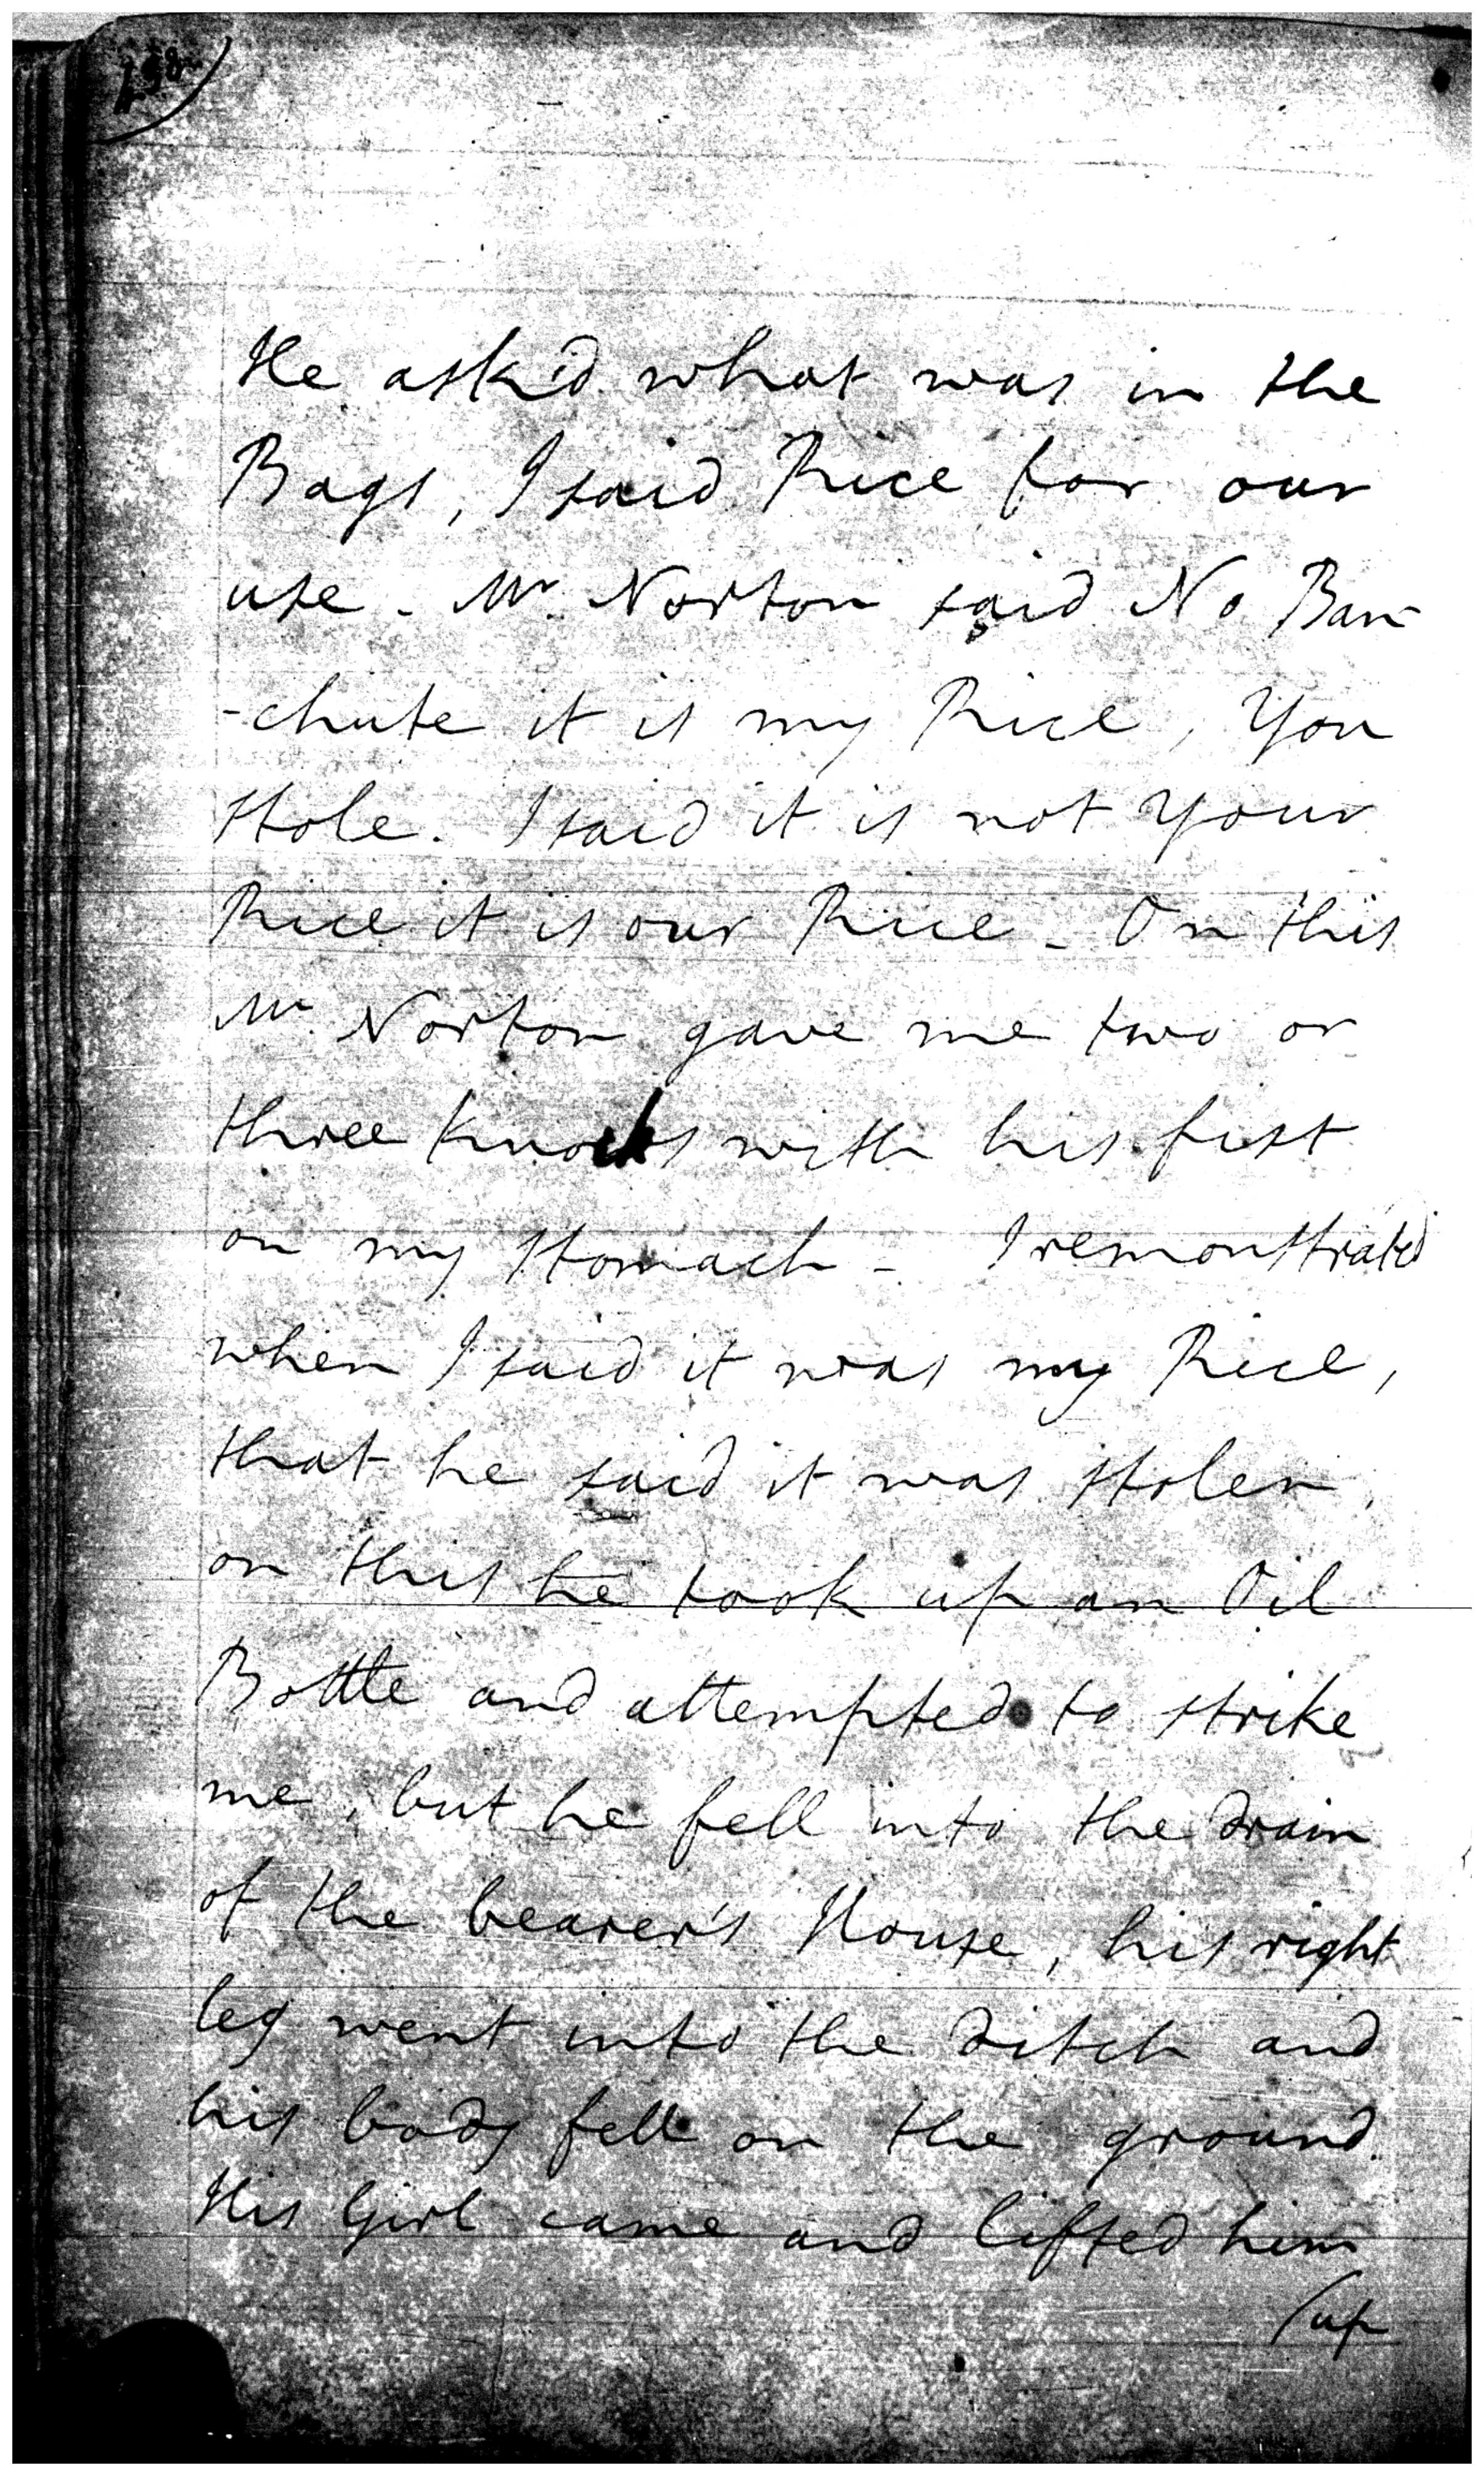 He ask'd what was in the
Bags, I said Rice for our
use - Mr. Norton said No Ban
-chute it is my Rice, You
Stole. I said it is not your
Rice it is our Rice - On this
Mr. Norton gave me two or
three knocks with his fist
on my stomach - I remonstrated
when I said it was my Rice,
that he said it was stolen,
on this he took up an Oil
Bottle and attempted to strike
me, but he fell into the drain
of the bearer's House, his right
leg went into the ditch and
his body fell on the ground.
His Girl came and lifted him
(up